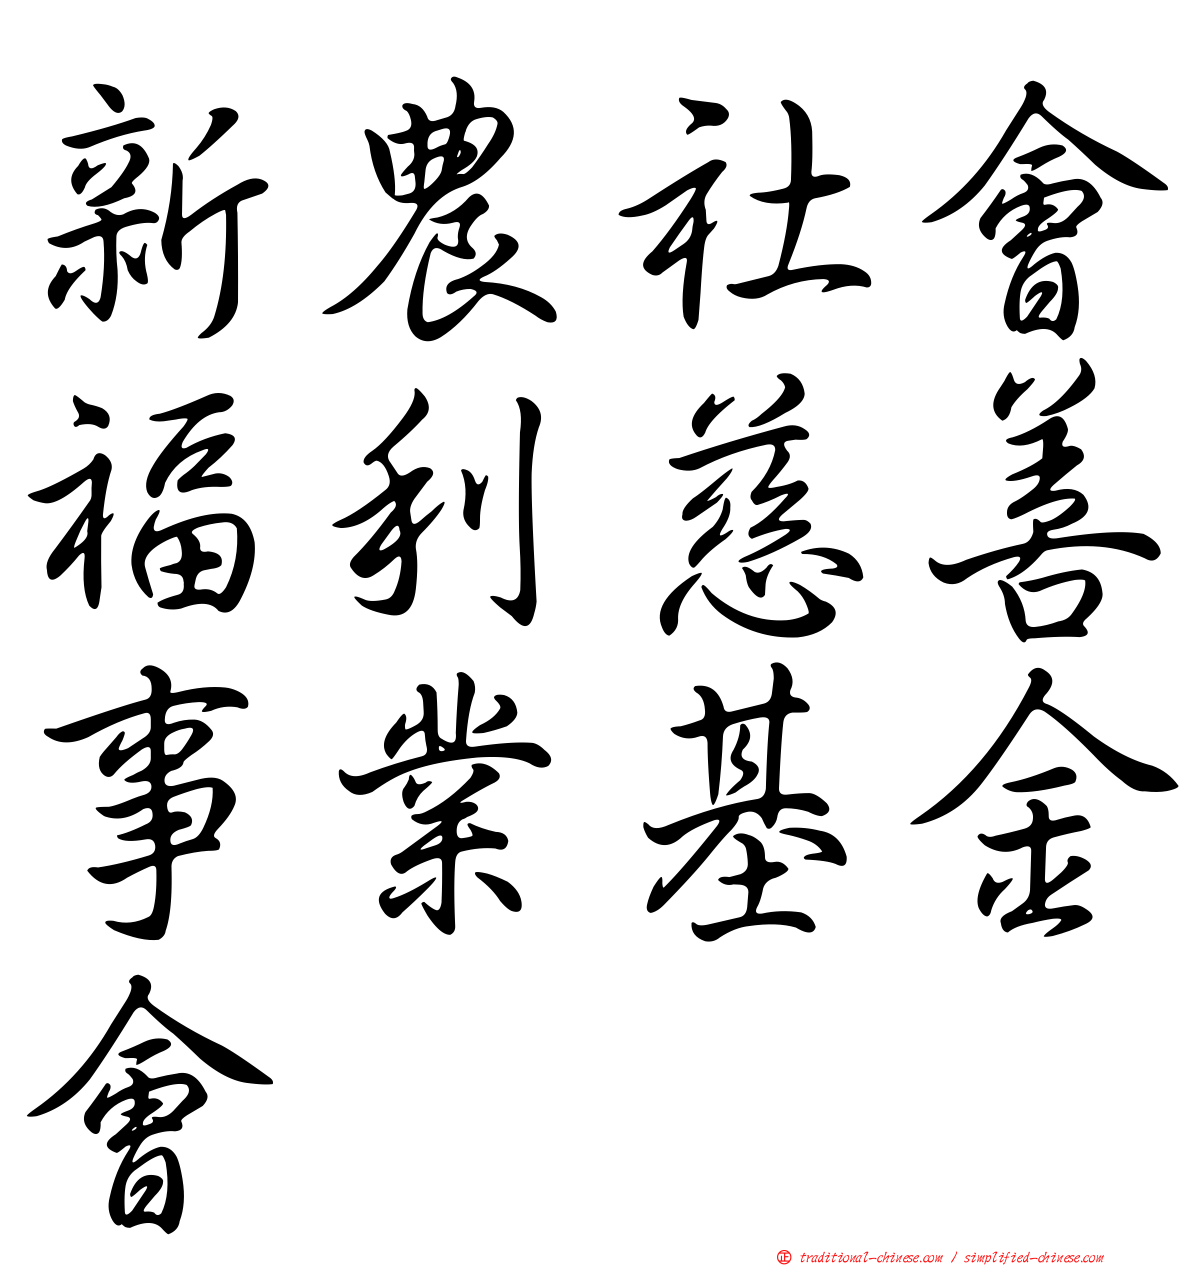 新農社會
福利慈善
事業基金
會
正 traditional-chinese.com / simplified-chinese.com